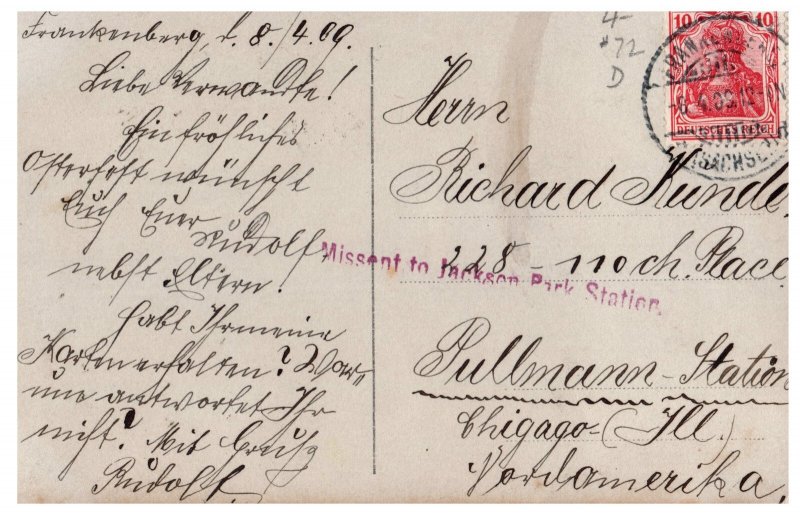 Frankenberg, d. 8./4.09.
Liebe Verwandte!
Ein fröhliches
Osterfest wünscht
Euch Euer
Rudolf,
nebst Eltern!
Habt Ihr meine
Karten erhalten? War-
um antwortet Ihr
nicht? Mit Gruß
Rudolf
4-
#72
D
10 10
DEUTSCHES REICH
Herrn
Richard Kunde,
228 - 110 ch. Place
Missent to Jackson Park Station.
Pullmann-Station
Chigago-(Ill.)
Nordamerika,